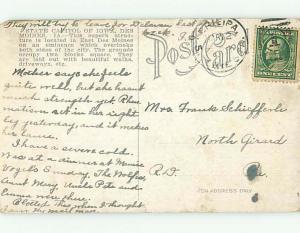 They will try to leave for Delavan last
week.
STATE CAPITOL OF IOWA, DES
MOINES, IA. This superb struc-
ture is located in East Des Moines
on an eminence which overlooks
both sides of the city. The grounds
occupy two square blocks. They
are laid out with beautiful walks,
driveways, etc.
Post Card
Mother says she feels
quite well, but she hasn't
much strength yet. Rheu-
matism is in her right
leg yesterday, and it makes
her lame.
I have a severe cold.
Was at a dinner at Minnie
Vogels Sunday. The Wolfes,
Aunt Mary Uncle Pete and
Emma were there.
Blotted this when I thought
my mail man
Mrs Frank Schifferle
North Girard
R.D. Pa.
FOR ADDRESS ONLY